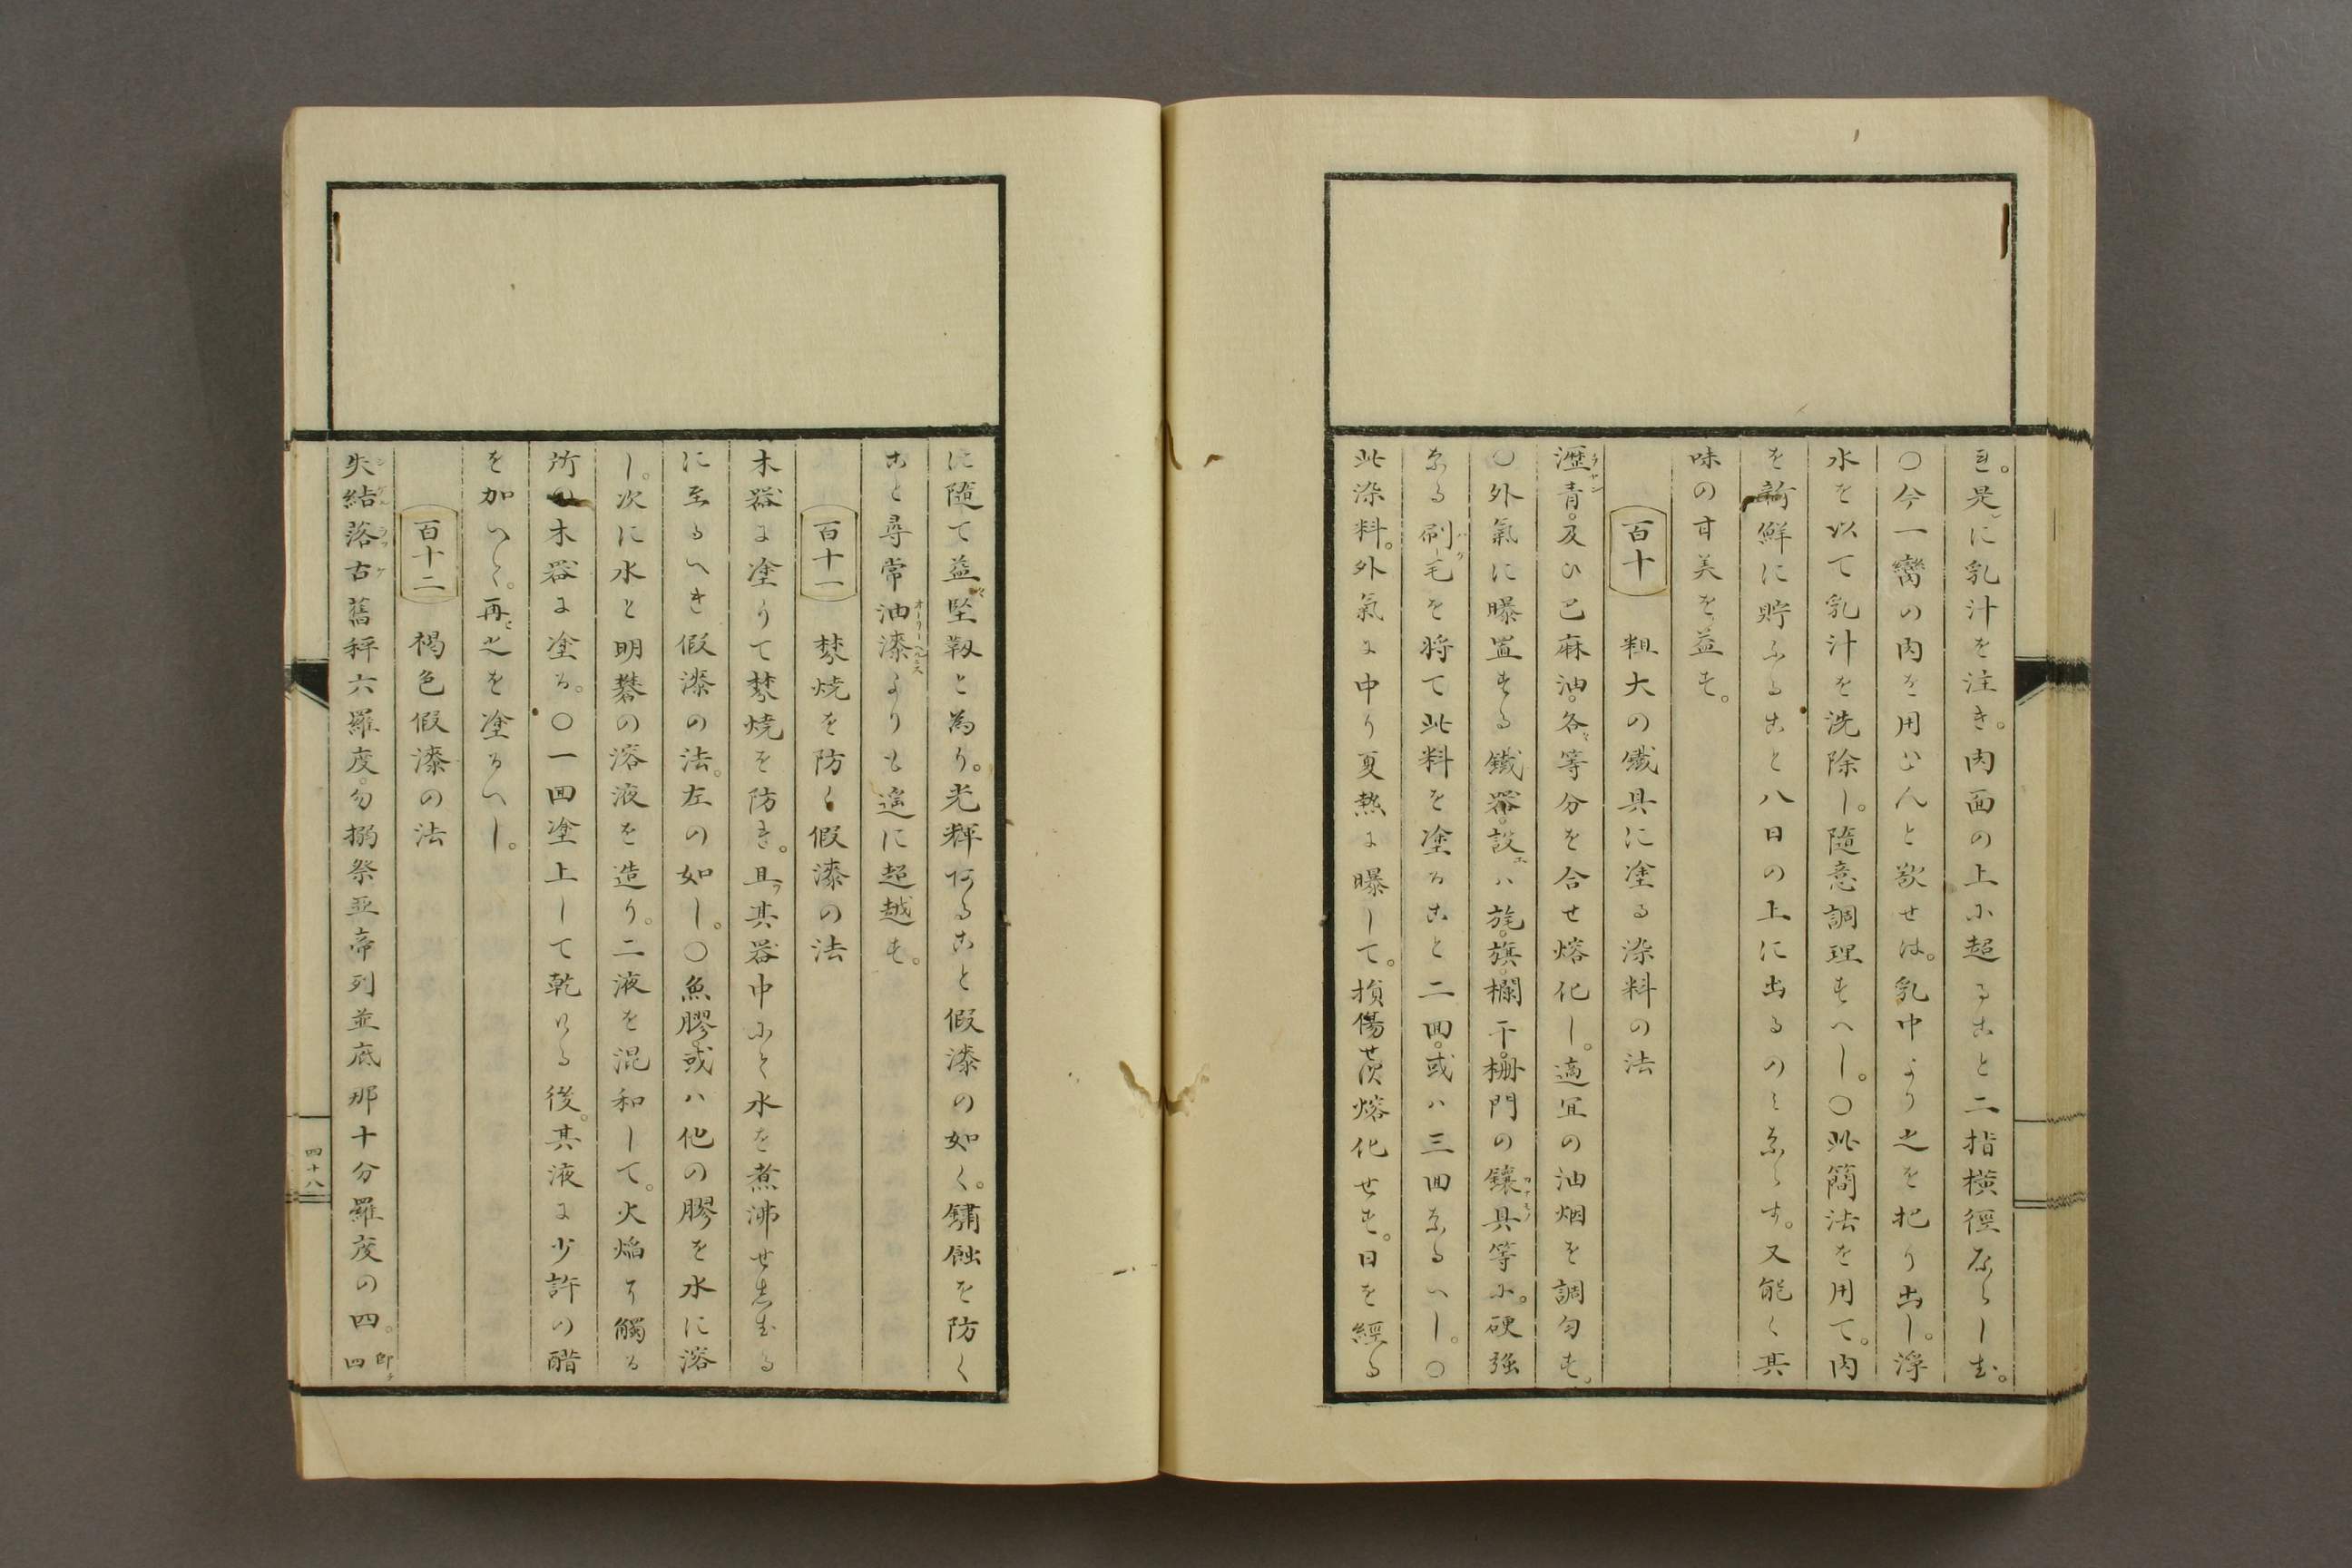 き。是に乳汁を注き。肉面の上に超ること二指横徑ならしむ。
○今一臠の肉を用ひんと欲せは。乳中より之を把り出し。浄
水を以て乳汁を洗除し。隨意調理すへし。○此簡法を用て。肉
を新鮮に貯ふること八日の上に出るのミならす。又能く其
味の甘美を益す。
百十 粗大の鐵具に塗る染料の法
瀝青。及ひ巴麻油。各等分を合せ熔化し。適宜の油烟を調匀す。
チヤン
○外氣に曝置する鐵器。設ハ旄。旗。欄干。柵門の鑲具等に。硬強
なる刷毛を将て此料を塗ること二回。或ハ三回なるへし。○
ハケ
此染料。外氣に中り夏熱に曝して。損傷せ茨熔化せす。日を經る
に隨て益堅靱と為り。光輝あること假漆の如く。鏽蝕を防く
こと尋常油漆よりも遥に超越す。
オーリーヘルニス
百十一 棼焼を防く假漆の法
木器に塗りて棼焼を防き。且其器中にて水を煮沸せしむる
に至るへき假漆の法。左の如し。○魚膠或ハ他の膠を水に溶
し。次に水と明礬の溶液を造り。二液を混和して。火焔に觸る
所の木器に塗る。○一回塗上して乾ける後。其液に少許の醋
を加へて。再之を塗るへし。
百十二 褐色假漆の法
失結落古舊秤六羅度。勿搦祭亜帝列並底那十分羅度の四。即四
シケルラツク
四十八